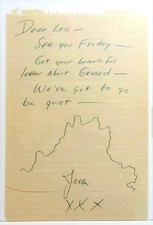 Dear
See you Friday —
Got your beautiful
letter about
We've got to go
be quiet —
Jack
X X X